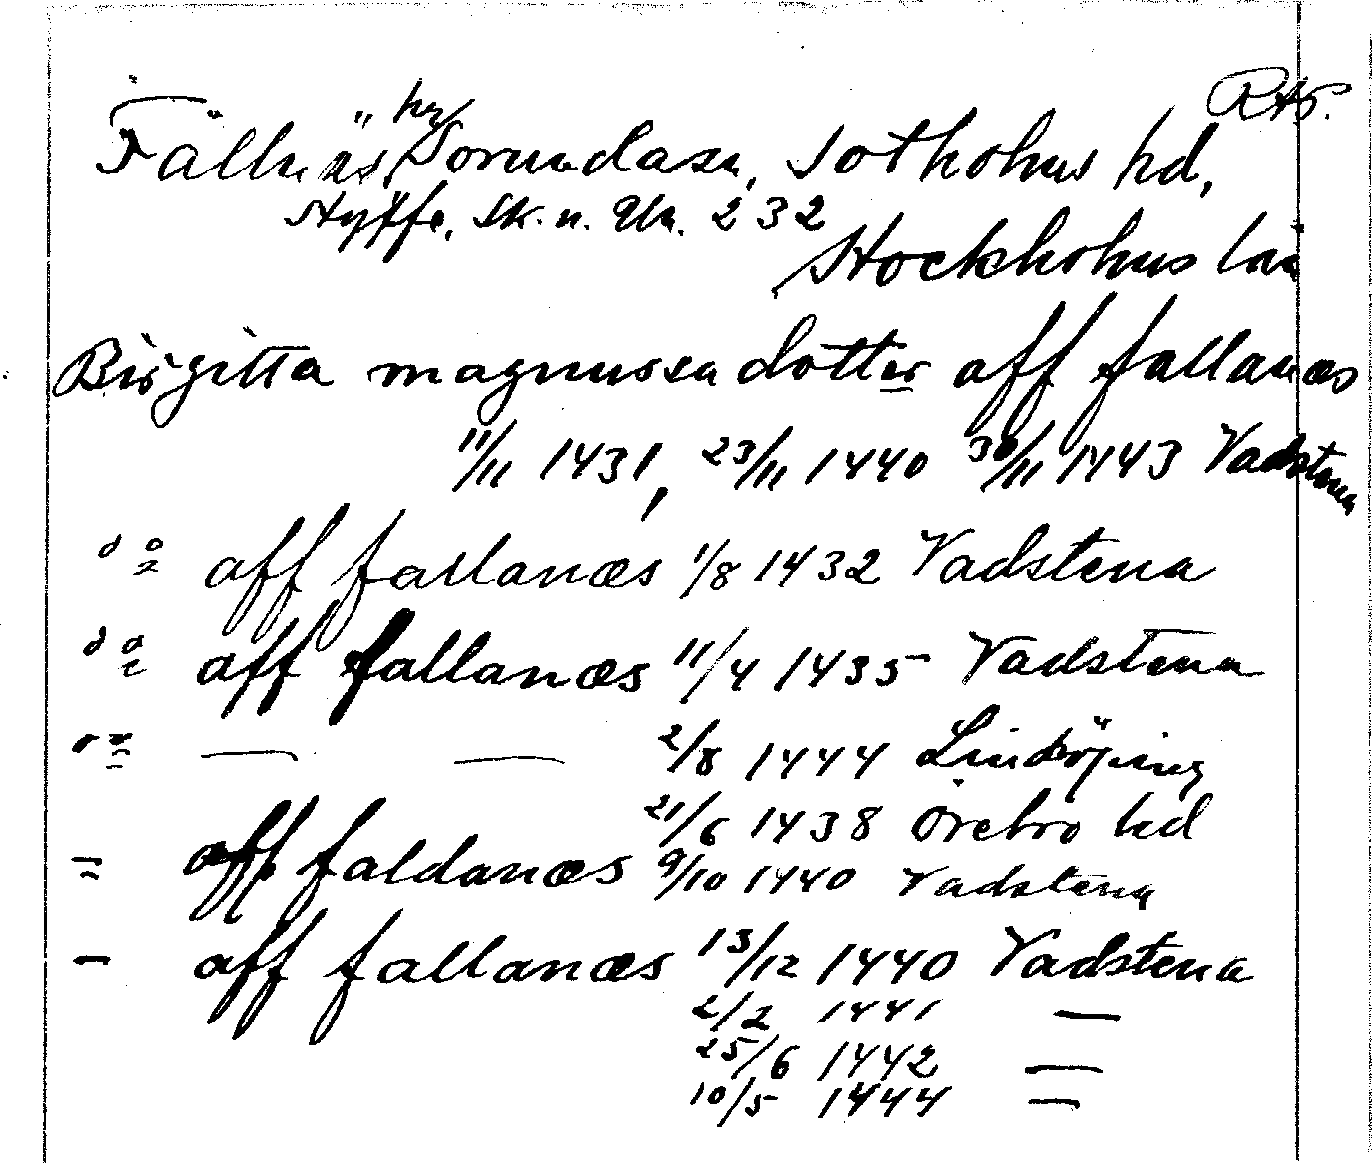 RAP.
Fållnäs, hr Sorunda sn, Sotholms hd,
Styffe, Sk. u. Un. 232
Stockholms län
Birgitta magnussa dotter aff fallanæs
11/11 1431, 23/11 1440 30/11 1443 Vadstena
do aff fallanæs 1/8 1432 Vadstena
do aff fallanæs 11/4 1435 Vadstena
— — 2/8 1444 Linköping
21/6 1438 Örebro hd
— aff faldanæs 9/10 1440 Vadstena
— aff fallanæs 13/12 1440 Vadstena
2/2 1441 —
25/6 1442 —
10/5 1444 —